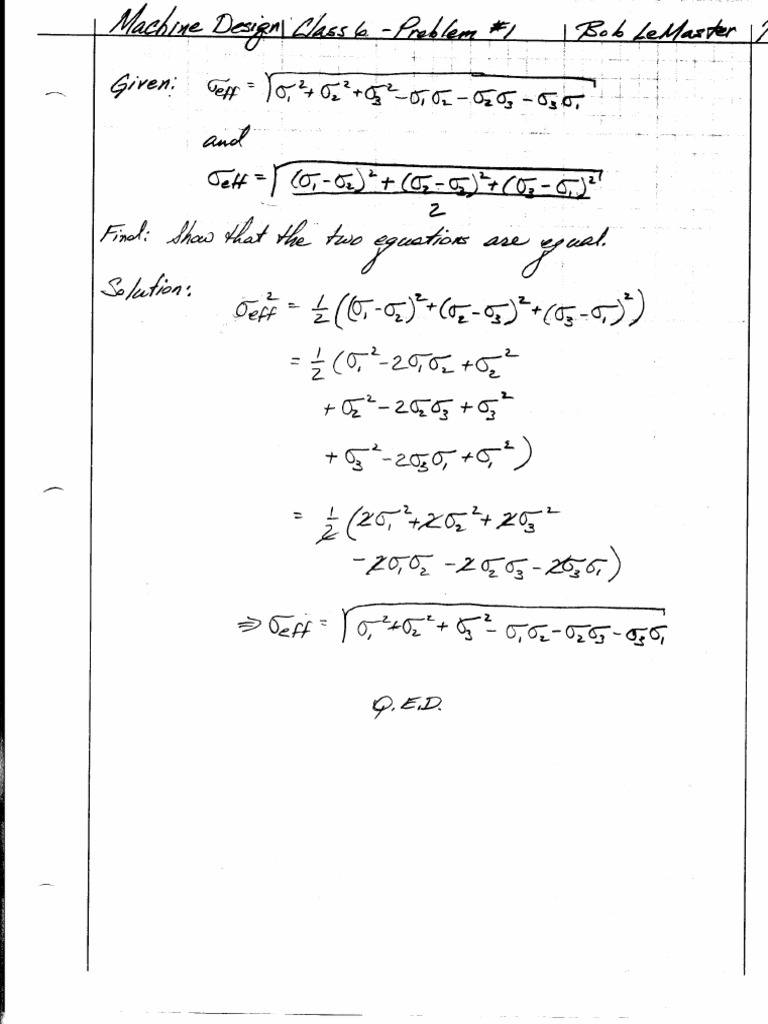 Machine Design | Class 6 - Problem #1 | Bob LeMaster
Given: σeff = √(σ₁² + σ₂² + σ₃² - σ₁σ₂ - σ₂σ₃ - σ₃σ₁)
and
σeff = √(((σ₁-σ₂)² + (σ₂-σ₃)² + (σ₃-σ₁)²)/2)
Find: Show that the two equations are equal.
Solution:
σeff² = 1/2((σ₁-σ₂)² + (σ₂-σ₃)² + (σ₃-σ₁)²)
= 1/2(σ₁² - 2σ₁σ₂ + σ₂²
+ σ₂² - 2σ₂σ₃ + σ₃²
+ σ₃² - 2σ₃σ₁ + σ₁²)
= 1/2(2σ₁² + 2σ₂² + 2σ₃²
- 2σ₁σ₂ - 2σ₂σ₃ - 2σ₃σ₁)
⇒ σeff = √(σ₁² + σ₂² + σ₃² - σ₁σ₂ - σ₂σ₃ - σ₃σ₁)
Q.E.D.